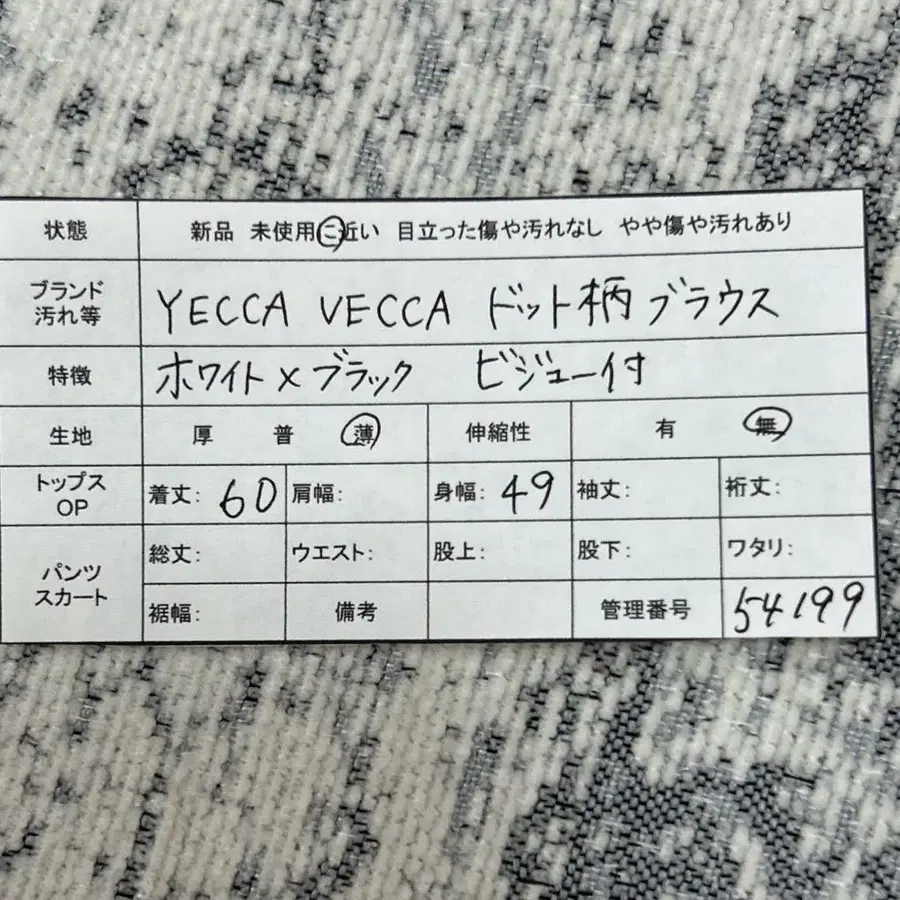 状態 新品 未使用に近い 目立った傷や汚れなし やや傷や汚れあり
ブランド
汚れ等 YECCA VECCA ドット柄 ブラウス
特徴 ホワイト×ブラック ビジュー付
生地 厚 普 薄 伸縮性 有 無
トップス
OP 着丈: 60 肩幅: 身幅: 49 袖丈: 裄丈:
パンツ
スカート 総丈: ウエスト: 股上: 股下: ワタリ:
裾幅: 備考 管理番号 54199